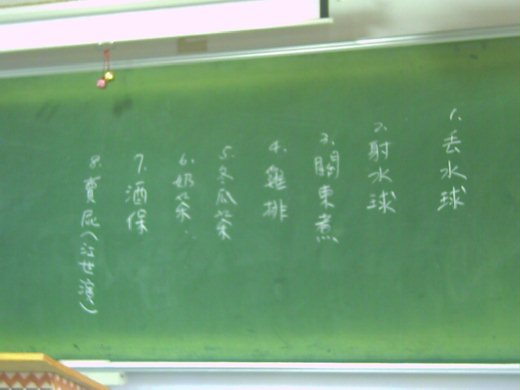 1. 丟水球
2. 射水球
3. 關東煮
4. 雞排
5. 冬瓜茶
6. 奶茶
7. 酒保
8. 賣屁(江世濱)